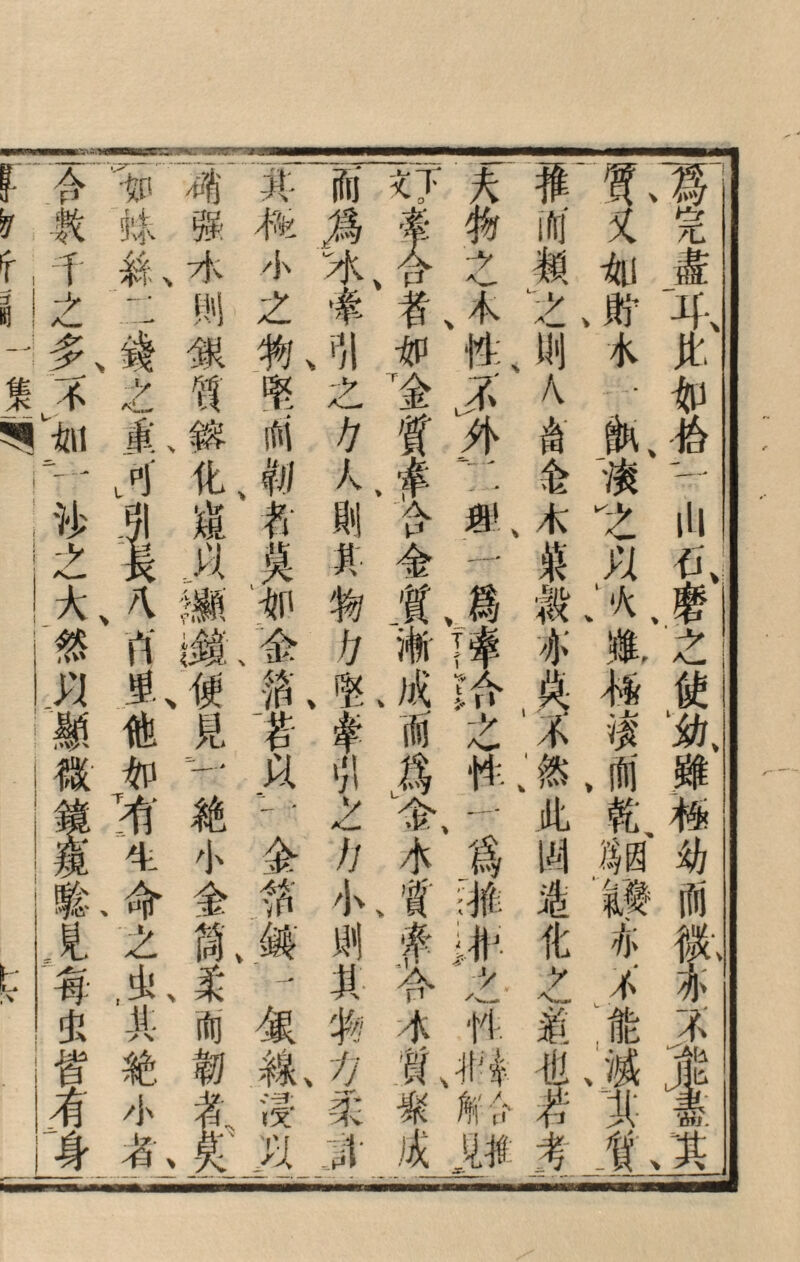 爲完盡耳、比如拾一山石、磨之使幼、雖極幼而微、亦不能盡其
質、又如貯水一甑、滚之以火、雖極滚而乾、因變爲氣亦不能滅其質、
推而類之、則人畜金木菓穀、亦莫不然、此固造化之道也、若考
夫物之本性、不外二理、一爲牽合之性、一爲推拒之性牽合推拒解見
下文。牽合者、如金質牽合金質、漸成而爲金、水質牽合水質、聚成
而爲水、牽引之力人、則其物力堅、牽引之力小、則其物力柔、計
其極小之物、堅而韌者莫如金箔、若以一金箔鑲一銀線、浸以
硝强水則銀質鎔化、窺以顯鏡、便見一絶小金筒、柔而韌者、莫
如蛛絲、二錢之重、可引長八百里、他如有生命之虫、其絶小者、
合數千之多、不如一沙之大、然以顯微鏡窺騐、見每虫皆有身
博物新編 一集